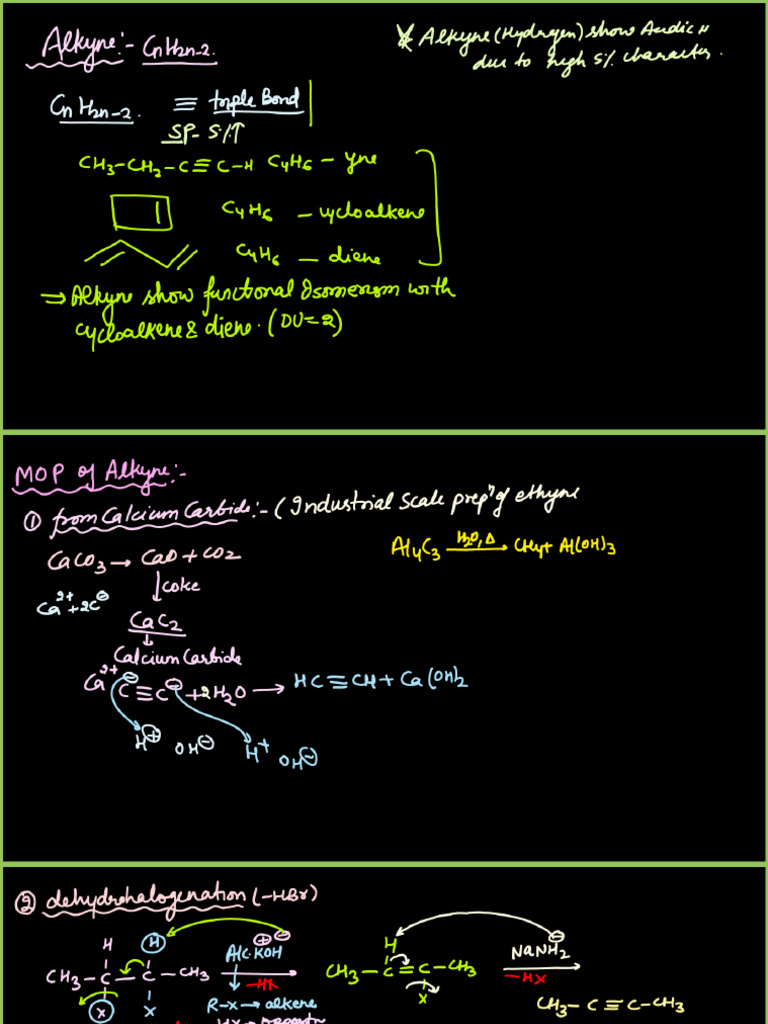 Alkyne:- CnH2n-2.
* Alkyne (Hydrogen) show Acidic n
due to high S% character.
CnH2n-2. ≡ triple Bond
SP- S%↑
CH3-CH2-C≡C-H C4H6 - yne
C4H6 - cycloalkene
C4H6 - diene
⇒ Alkyne show functional Isomerism with
cycloalkene & diene. (DU=2)
MOP of Alkyne:-
① from Calcium Carbide:- (Industrial Scale prepⁿ of ethyne
CaCO3 → CaO + CO2
Al4C3 —H2O, Δ→ CH4 + Al(OH)3
↓ coke
Ca2+ + 2C⊖
CaC2
↓
Calcium Carbide
Ca2+ ⊖C≡C⊖ + 2H2O → HC≡CH + Ca(OH)2
H⊕ OH⊖ H+ OH⊖
② dehydrohalogenation (-HBr)
H H Alc.KOH ⊕ ⊖ H NaNH2 ⊖
CH3-C-C-CH3 -HX CH3-C=C-CH3 -HX
X X R-X → alkene X CH3-C≡C-CH3